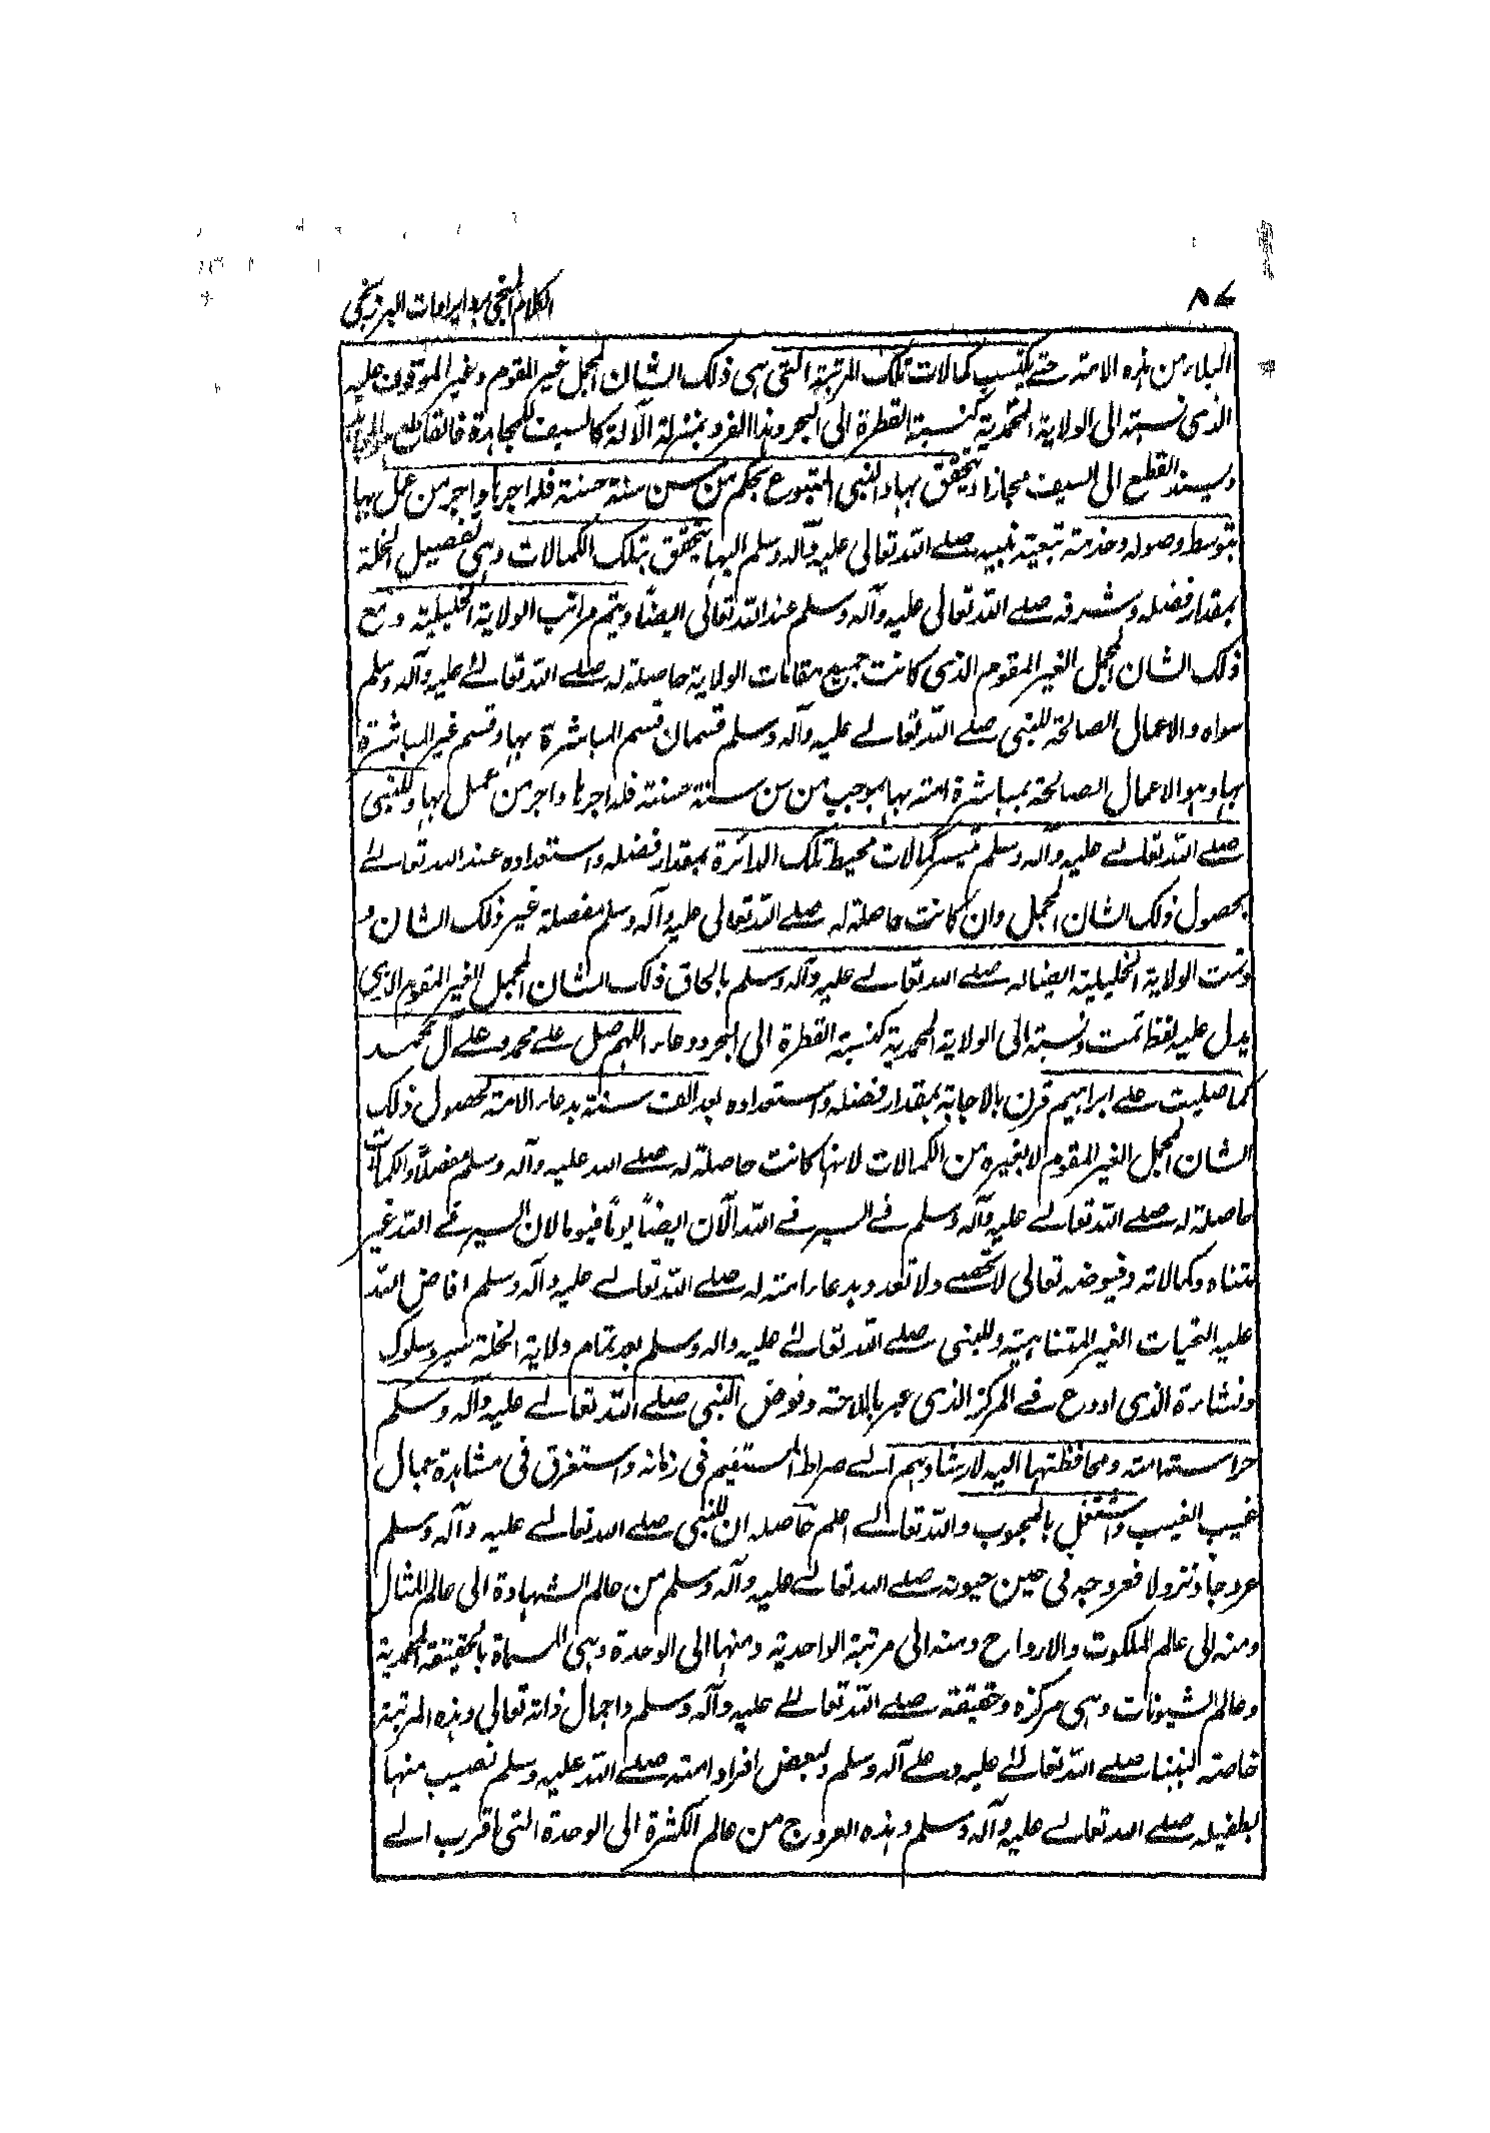 ٨٧ الكلام المنجى برد ايرادات البرزنجى
البلاد من هذه الامة حتى يكتسب كمالات تلك المرتبة التى هى ذلك الشان المجمل غير المقوم وغير الموقوف عليه
الذى نسبته الى الولاية المحمدية كنسبة القطرة الى البحر وهذا الفرد بمنزلة الآلة كالسيف للمجاهدة فالقاطع
ويسند القطع الى السيف مجازا ويتحقق بها والنبى المتبوع بحكم من سن سنة حسنة فله اجرها واجر من عمل بها
بتوسط وصوله وخدمة تبعية نبيه صلے الله تعالى عليه وآله وسلم اليها يتحقق بتلك الكمالات وهى تفصيل الخلة
بمقدار فضله وشرفه صلے الله تعالى عليه وآله وسلم عند الله تعالى ايضًا ويتم مراتب الولاية الخليلية ومع
ذلك الشان المجمل الغير المقوم الذى كانت جميع مقامات الولاية حاصلة له صلے الله تعالے عليه وآله وسلم
سواه والاعمال الصالحة للنبى صلے الله تعالے عليه وآله وسلم قسمان قسم المباشرة بها وقسم غير المباشرة
بها وهو الاعمال الصالحة بمباشرة امته بها بموجب من سن سنة حسنة فله اجرها واجر من عمل بها وللنبى
صلے الله تعالے عليه وآله وسلم تيسر كمالات محيط تلك الدائرة بمقدار فضله واستعداده عند الله تعالے
بحصول ذلك الشان المجمل وان كانت حاصلة له صلے الله تعالى عليه وآله وسلم مفصلة غير ذلك الشان و
وتمت الولاية الخليلية ايضا له صلے الله تعالے عليه وآله وسلم بالحاق ذلك الشان المجمل الغير المقوم الذى
يدل عليه لفظ تمت ونسبته الى الولاية المحمدية كنسبة القطرة الى البحر ودعاء اللهم صل علے محمد وعلے آل محمد
كما صليت علے ابراهيم قرن بالاجابة بمقدار فضله واستعداده بعد الف سنة بدعاء الامة لحصول ذلك
الشان المجمل الغير المقوم لا بغيره من الكمالات لانها كانت حاصلة له صلے الله عليه وآله وسلم مفصلًا والكمالات
حاصلة له صلے الله تعالے عليه وآله وسلم فے السير فے الله الآن ايضًا يومًا فيوما لان السير فے الله غير
متناه وكمالاته وفيوضه تعالى لا تحصے ولا تعد وبدعاء امته له صلے الله تعالے عليه وآله وسلم افاض الله
عليه التحيات الغير المتناهية وللنبى صلے الله تعالے عليه واله وسلم بعد تمام ولاية الخلة سير وسلوك
ونشارة الذى اودع فے المركز الذى عبر بالملاحة وفوض النبى صلے الله تعالے عليه وآله وسلم
حراسة امته ومحافظتها اليه لارشادهم الے صراط المستقيم فى زمانه واستغرق فى مشاهدة جمال
غيب الغيب واشتغل بالمحبوب والله تعالے اعلم حاصله ان للنبى صلے الله تعالے عليه وآله وسلم
عروجا ونزولا فعروجه فى حين حيوته صلے الله تعالے عليه وآله وسلم من عالم الشهادة الى عالم المثال
ومنه الى عالم الملكوت والارواح ومنه الى مرتبة الواحدية ومنها الى الوحدة وهى المسماة بالحقيقة المحمدية
وعالم الشيونات وهى مركزه وحقيقته صلے الله تعالے عليه وآله وسلم واجمال ذاته تعالى وهذه المرتبة
خاصة لنبينا صلے الله تعالے عليه وعلے آله وسلم ولبعض افراد امته صلے الله عليه وسلم نصيب منها
بطفيله صلے الله تعالے عليه وآله وسلم وهذه العروج من عالم الكثرة الى الوحدة التى اقرب الے